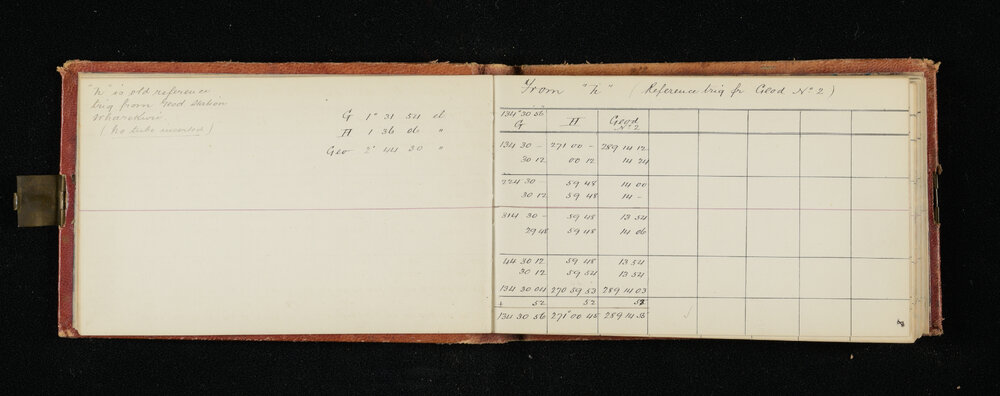 "h" is old reference
trig from Geod Station
Wharekiri
(no tube inserted)
G 1° 31 54 el
H 1 36 06 "
Geo 2° 44 30 "
From "h" (Reference trig fr Geod No 2)
134° 30 56
G H Geod No 2
134 30 - 271 00 - 289 14 12
30 12 00 12 14 24
224 30 - 59 48 14 00
30 12 59 48 14 -
314 30 - 59 48 13 54
29 48 59 48 14 06
44 30 12 59 48 13 54
30 12 59 54 13 54
134 30 04 270 59 53 289 14 03
+ 52 52 52
134 30 56 271° 00 45 289 14 55